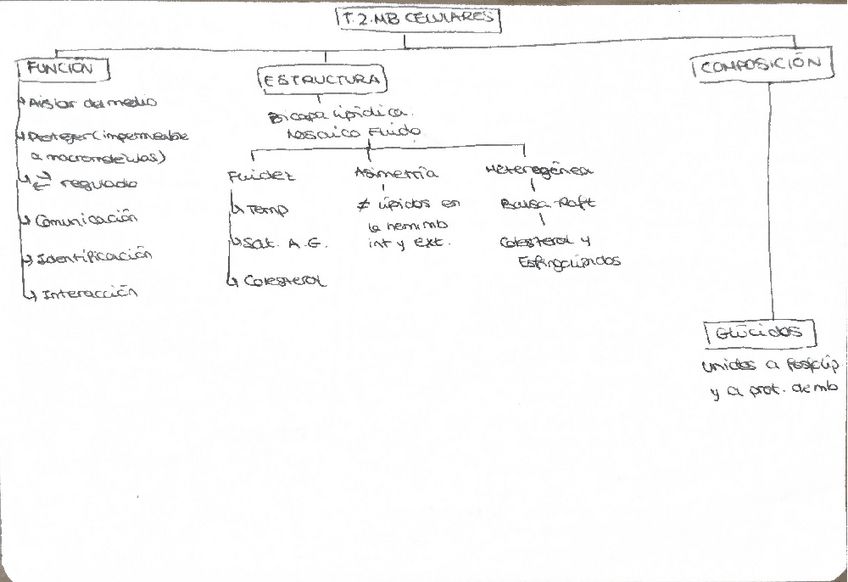 T.2. MB CELULARES
FUNCIÓN
Aislar del medio
Proteger (impermeable
a macromoléculas)
⇄ regulado
Comunicación
Identificación
Interacción
ESTRUCTURA
Bicapa lipídica.
Mosaico Fluido
Fluidez
Temp
Sat. A.G.
Colesterol
Asimetría
≠ lípidos en
la hemimb
int y ext.
Heterogénea
Balsa-Raft
Colesterol y
Esfingolípidos
COMPOSICIÓN
GLÚCIDOS
unidos a fosfolip
y a prot. de mb